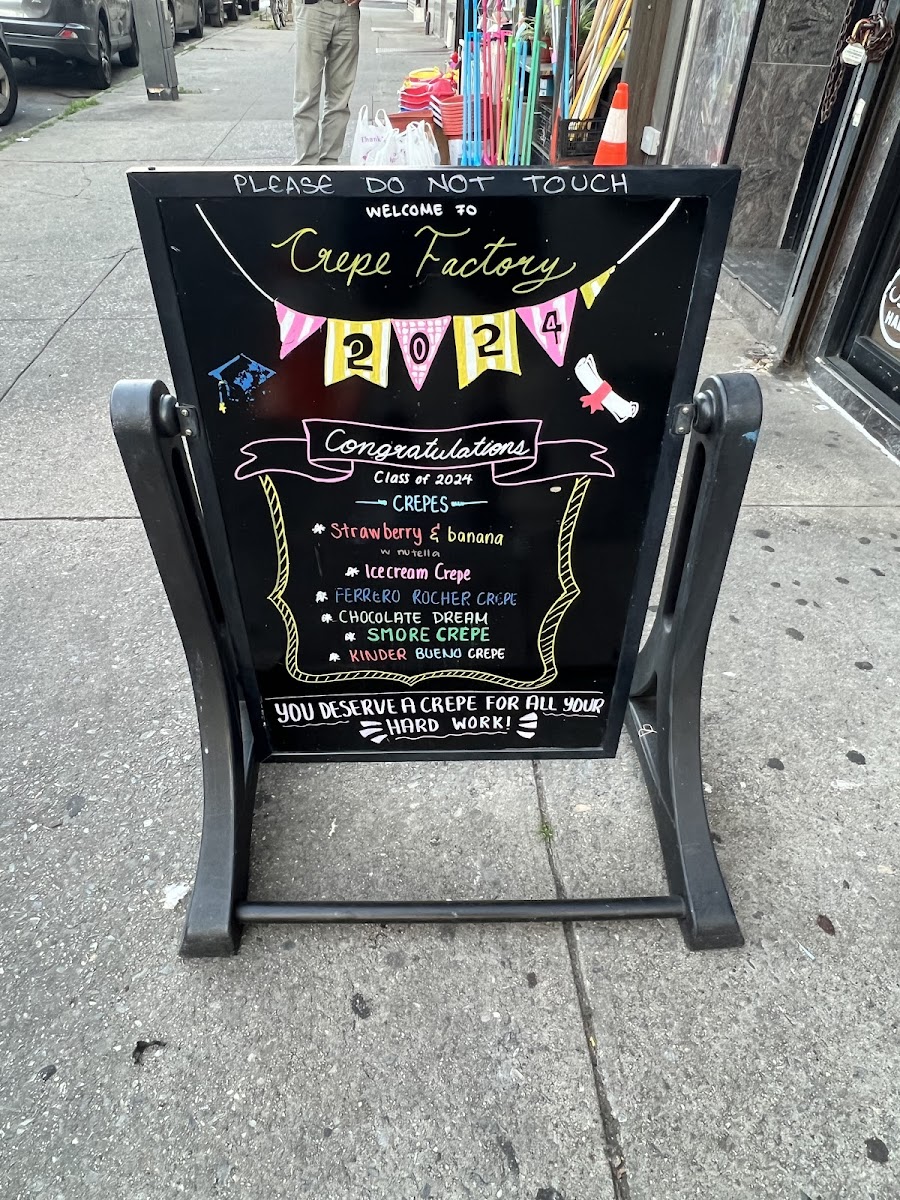 PLEASE DO NOT TOUCH
WELCOME TO
Crepe Factory
2024
Congratulations
Class of 2024
CREPES
* Strawberry & banana
w nutella
* Icecream Crepe
* FERRERO ROCHER CREPE
* CHOCOLATE DREAM
* SMORE CREPE
* KINDER BUENO CREPE
YOU DESERVE A CREPE FOR ALL YOUR
HARD WORK!